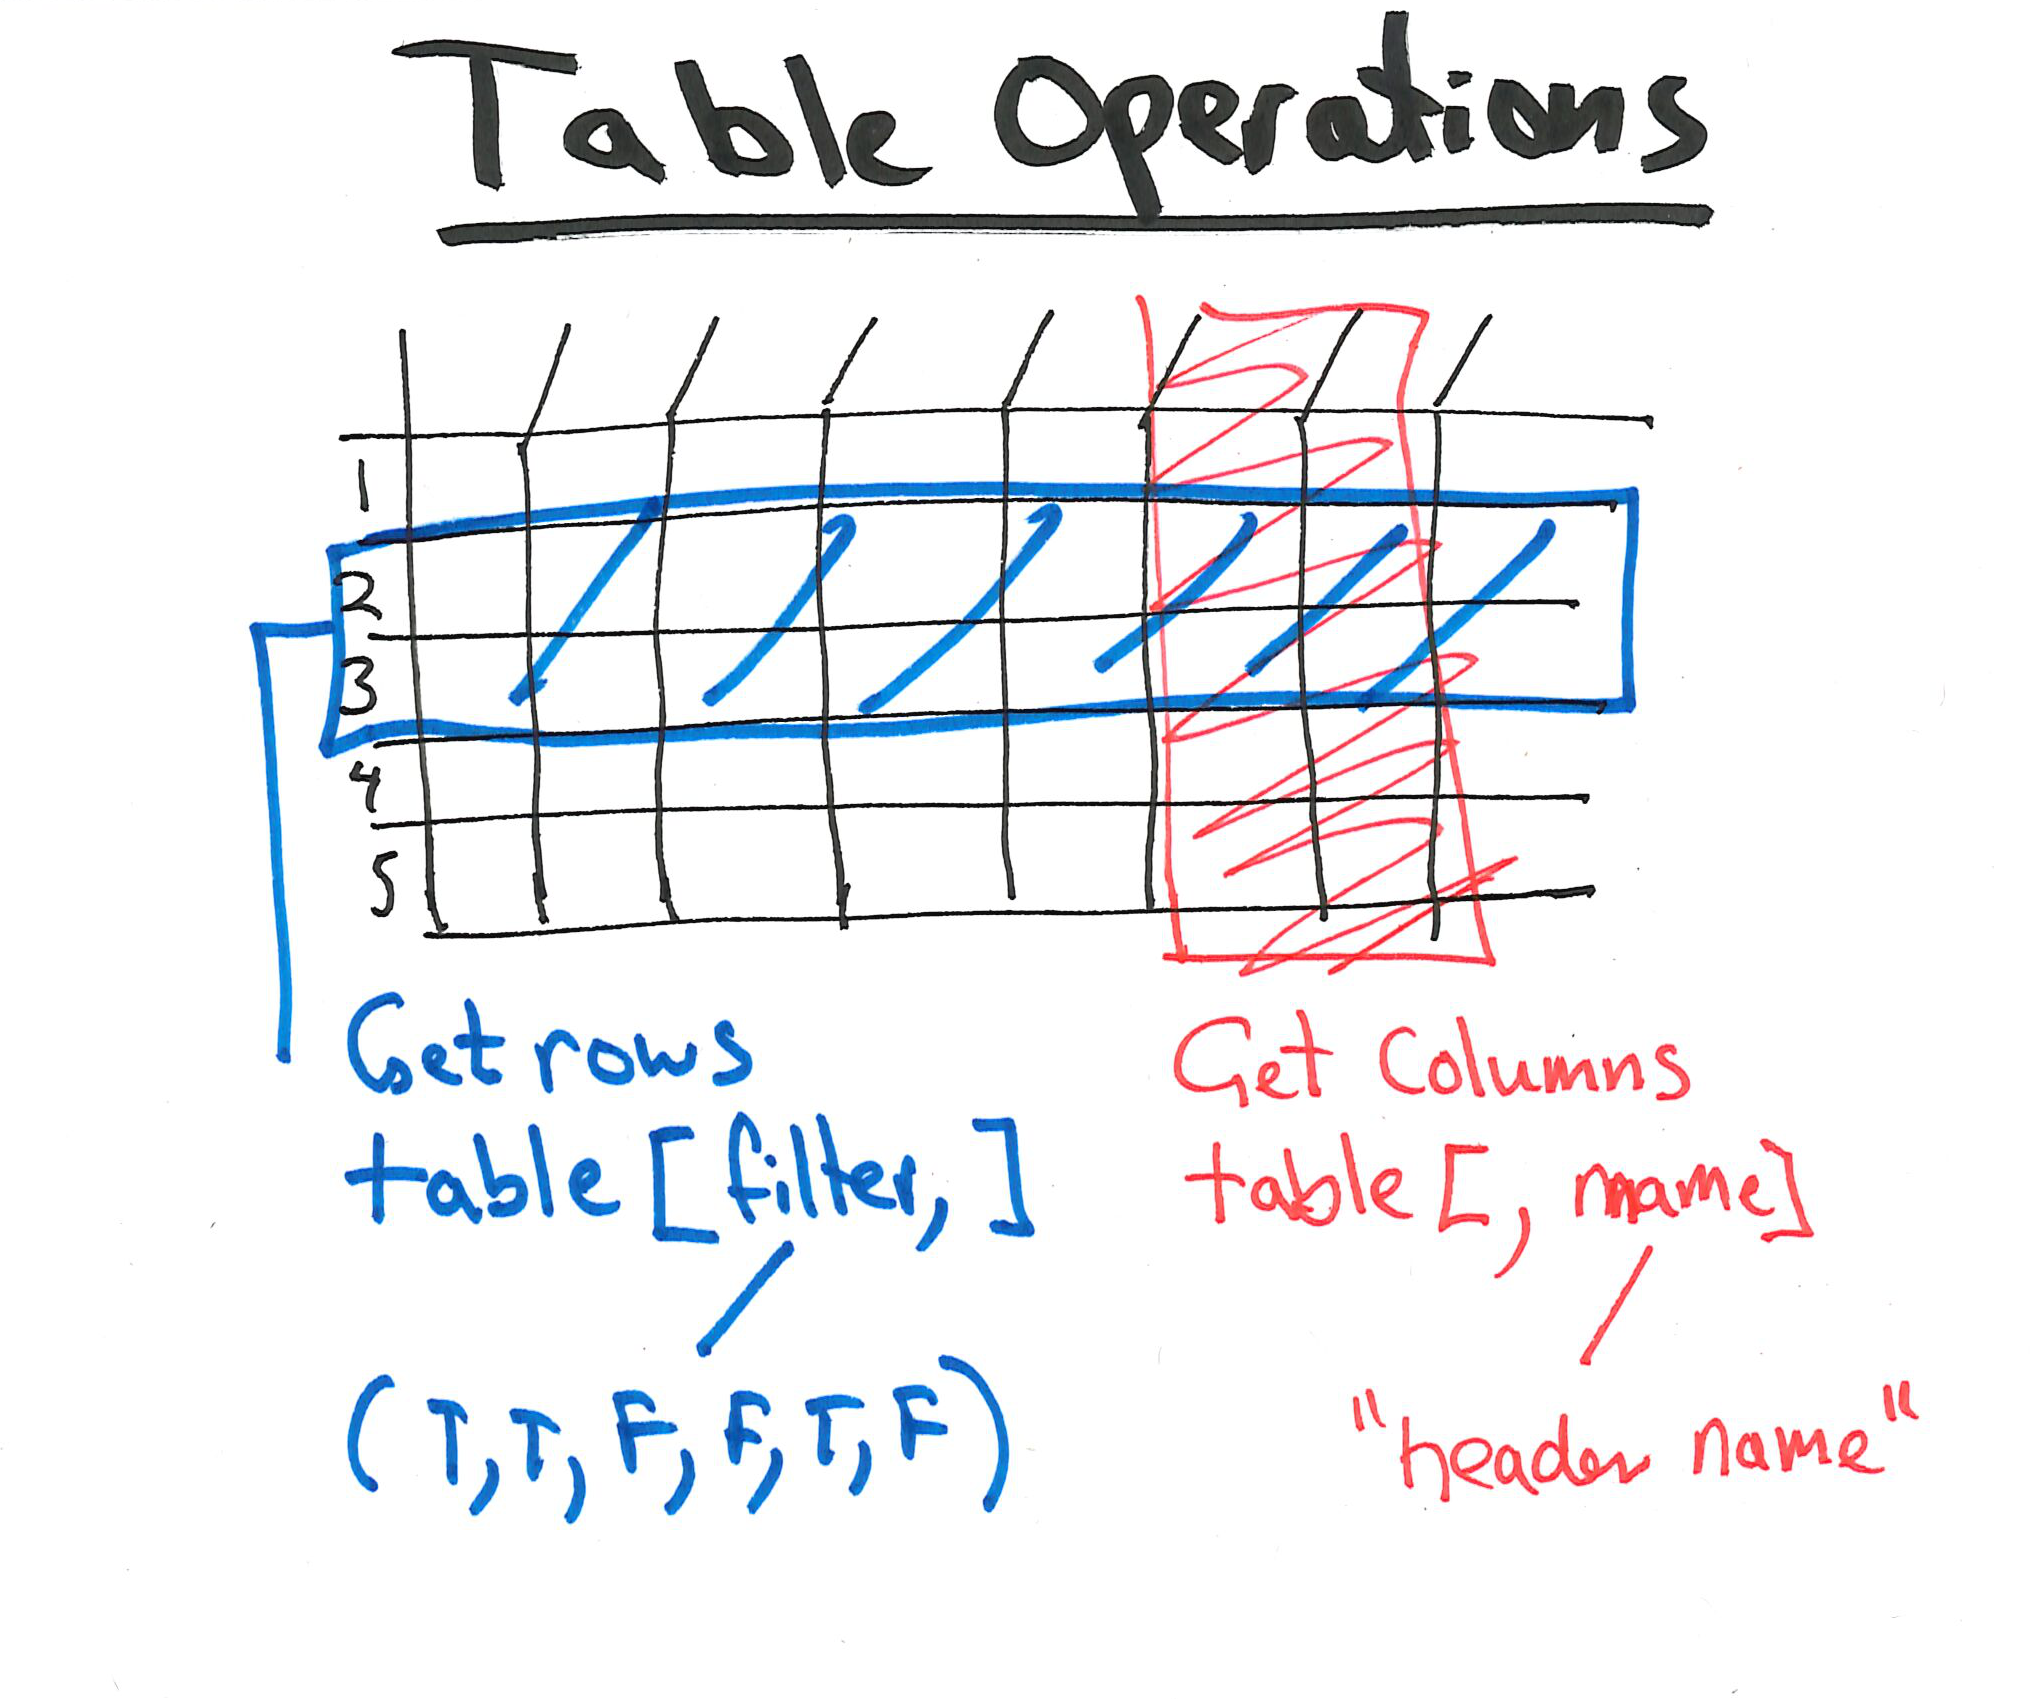 Table Operations
1
2
3
4
5
Get rows
table[filter,]
(T,T,F,F,T,F)
Get Columns
table[, name]
"header name"